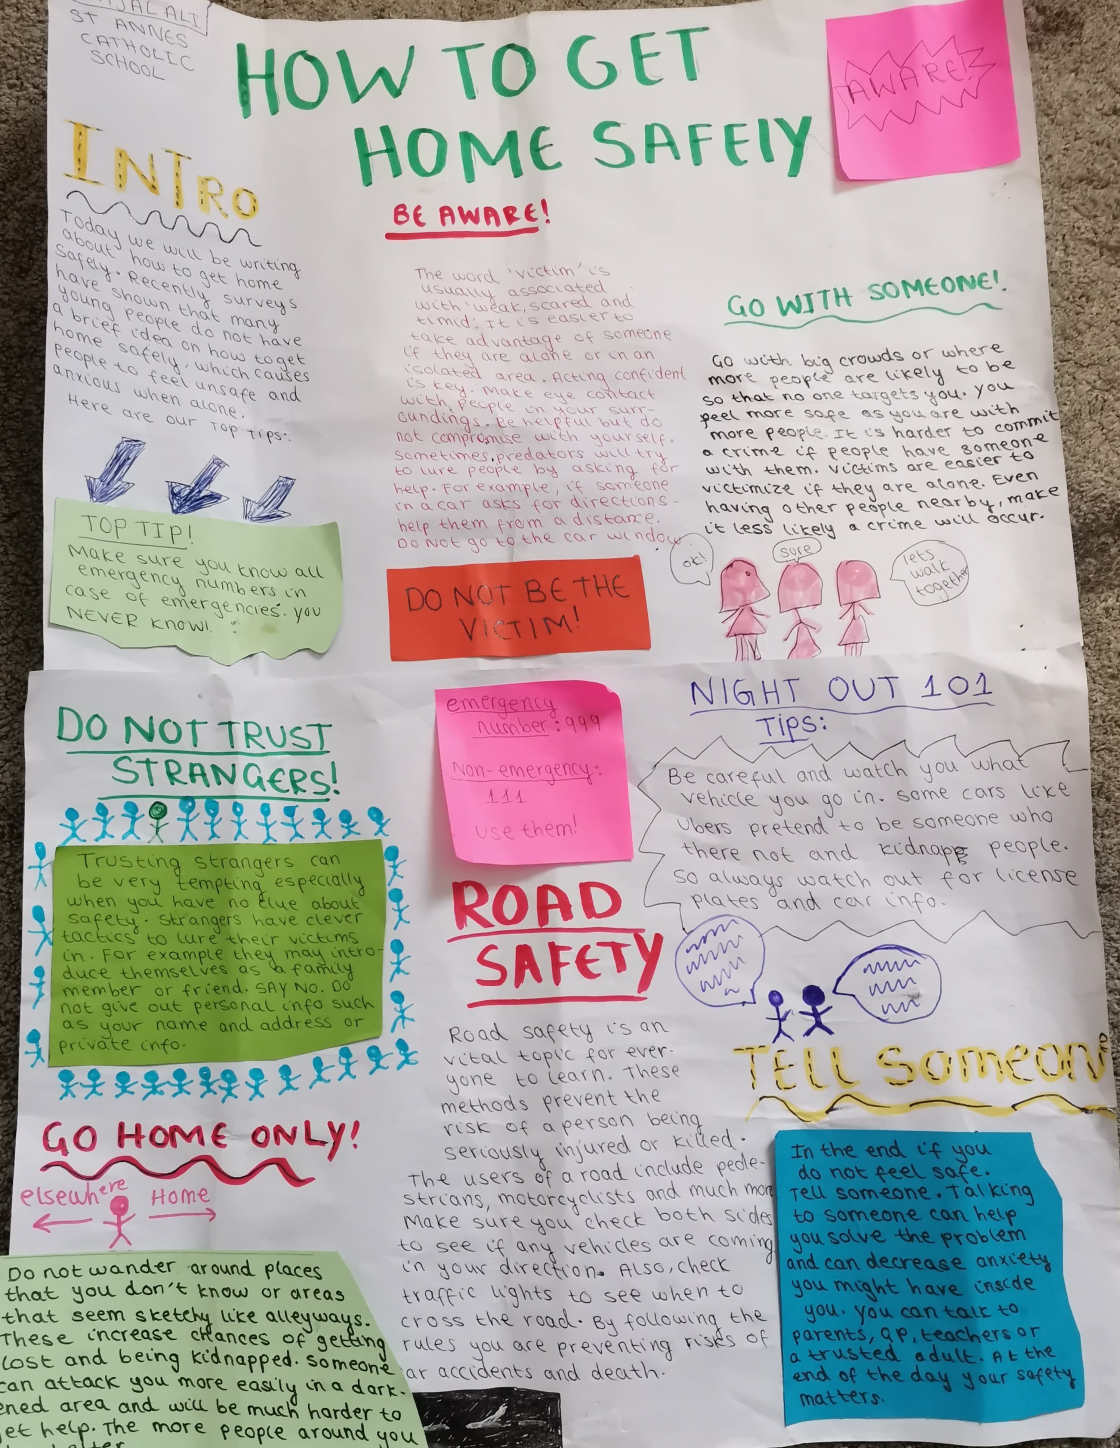 ALI
ST ANNES
CATHOLIC
SCHOOL
HOW TO GET
HOME SAFELY
AWARE!
INTRO
Today we will be writing
about how to get home
safely. Recently surveys
have shown that many
young people do not have
a brief idea on how to get
home safely, which causes
people to feel unsafe and
anxious when alone.
Here are our Top Tips:
TOP TIP!
Make sure you know all
emergency numbers in
case of emergencies. you
NEVER KNOW!
BE AWARE!
The word 'victim' is
usually associated
with weak, scared and
timid. It is easier to
take advantage of someone
if they are alone or in an
isolated area. Acting confident
is key. Make eye contact
with people in your surr-
oundings. Be helpful but do
not compromise with yourself.
Sometimes, predators will try
to lure people by asking for
help. For example, if someone
in a car asks for directions-
help them from a distance.
Do Not go to the car window
DO NOT BE THE
VICTIM!
GO WITH SOMEONE!
Go with big crowds or where
more people are likely to be
so that no one targets you. you
feel more safe as you are with
more people. It is harder to commit
a crime if people have someone
with them. Victims are easier to
victimize if they are alone. Even
having other people nearby, make
it less likely a crime will occur.
ok!
sure
lets
walk
together
DO NOT TRUST
STRANGERS!
Trusting strangers can
be very tempting especially
when you have no clue about
safety. Strangers have clever
tactics to lure their victims
in. For example they may intro-
duce themselves as a family
member or friend. SAY NO. Do
not give out personal info such
as your name and address or
private info.
GO HOME ONLY!
elsewhere Home
Do not wander around places
that you don't know or areas
that seem sketchy like alleyways.
These increase chances of getting
lost and being kidnapped. Someone
can attack you more easily in a dark-
ened area and will be much harder to
get help. The more people around you
emergency
number: 999
Non-emergency:
111
use them!
ROAD
SAFETY
Road safety is an
vital topic for ever-
yone to learn. These
methods prevent the
risk of a person being
seriously injured or killed.
The users of a road include pede-
strians, motorcyclists and much more
Make sure you check both sides
to see if any vehicles are coming
in your direction. Also, check
traffic lights to see when to
cross the road. By following the
rules you are preventing risks of
car accidents and death.
NIGHT OUT 101
Tips:
Be careful and watch you what
vehicle you go in. Some cars like
Ubers pretend to be someone who
there not and kidnapp people.
So always watch out for license
plates and car info.
TELL SOMEONE
In the end if you
do not feel safe.
Tell someone. Talking
to someone can help
you solve the problem
and can decrease anxiety
you might have inside
you. you can talk to
parents, GP, teachers or
a trusted adult. At the
end of the day your safety
matters.